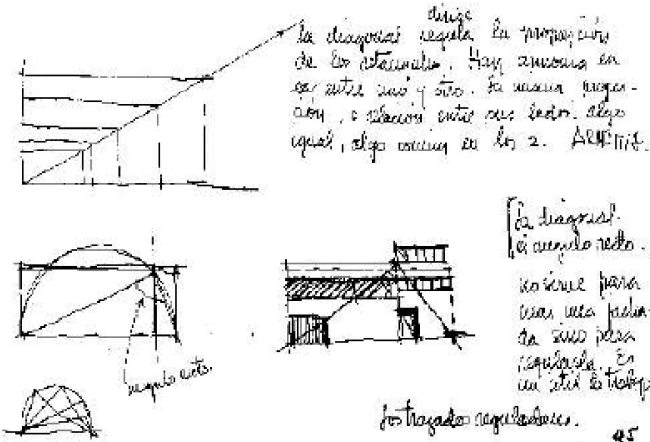 dirige
la diagonal regula la proporción
de los rectángulos. Hay armonía en
entre uno y otro. la misma propor-
ción, o relación entre sus lados. algo
igual, algo común en los 2.
la diagonal.
el angulo recto.
no sirve para
crear una facha-
da sino para
regularla. Es
un útil de trabajo
angulo recto.
los trazados reguladores.